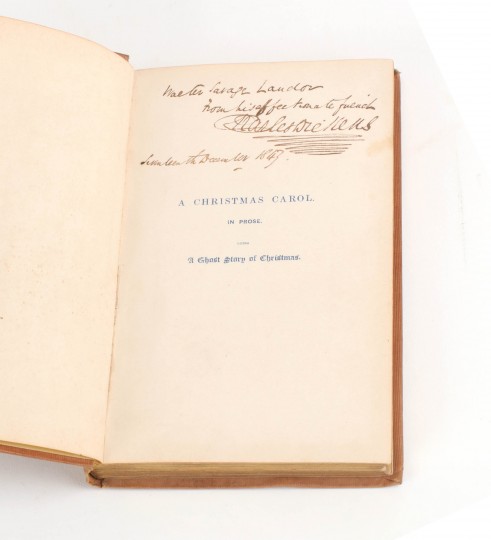 Walter Savage Landor
From his affectionate friend
Charles Dickens
Seventeenth December 1843.
A CHRISTMAS CAROL.
IN PROSE.
A Ghost Story of Christmas.